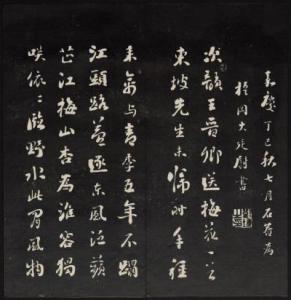 嘉慶丁巳秋七月石菴為
大廷尉書
次韻王晉卿送梅花一首
東坡先生未歸時自種
來禽與青李五年不蹋
江頭路夢逐東風泛蘋
芷江梅山杏為誰容獨
笑依〻臨野水此間風物